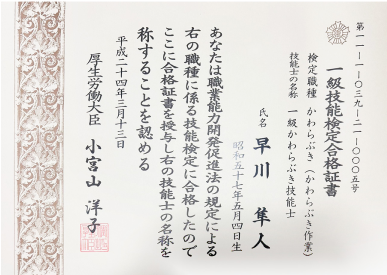 第一一-一-〇三九-二一-〇〇〇五号
一級技能検定合格証書
検定職種 かわらぶき（かわらぶき作業）
技能士の名称 一級かわらぶき技能士
氏名 早川 隼人
昭和五十七年五月四日生
あなたは職業能力開発促進法の規定による
右の職種に係る技能検定に合格したので
ここに合格証書を授与し右の技能士の名称を
称することを認める
平成二十四年三月十三日
厚生労働大臣 小宮山 洋子